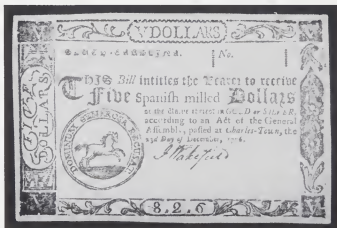 V DOLLARS
No.
THIS Bill intitles the Bearer to receive
Five Spanish milled Dollars
or the Value thereof in GOLD or SILVER,
according to an Act of the General
Assembly, passed at Charles-Town, the
23d Day of December, 1776.
J Wakefield
DOLLARS
8.2.6